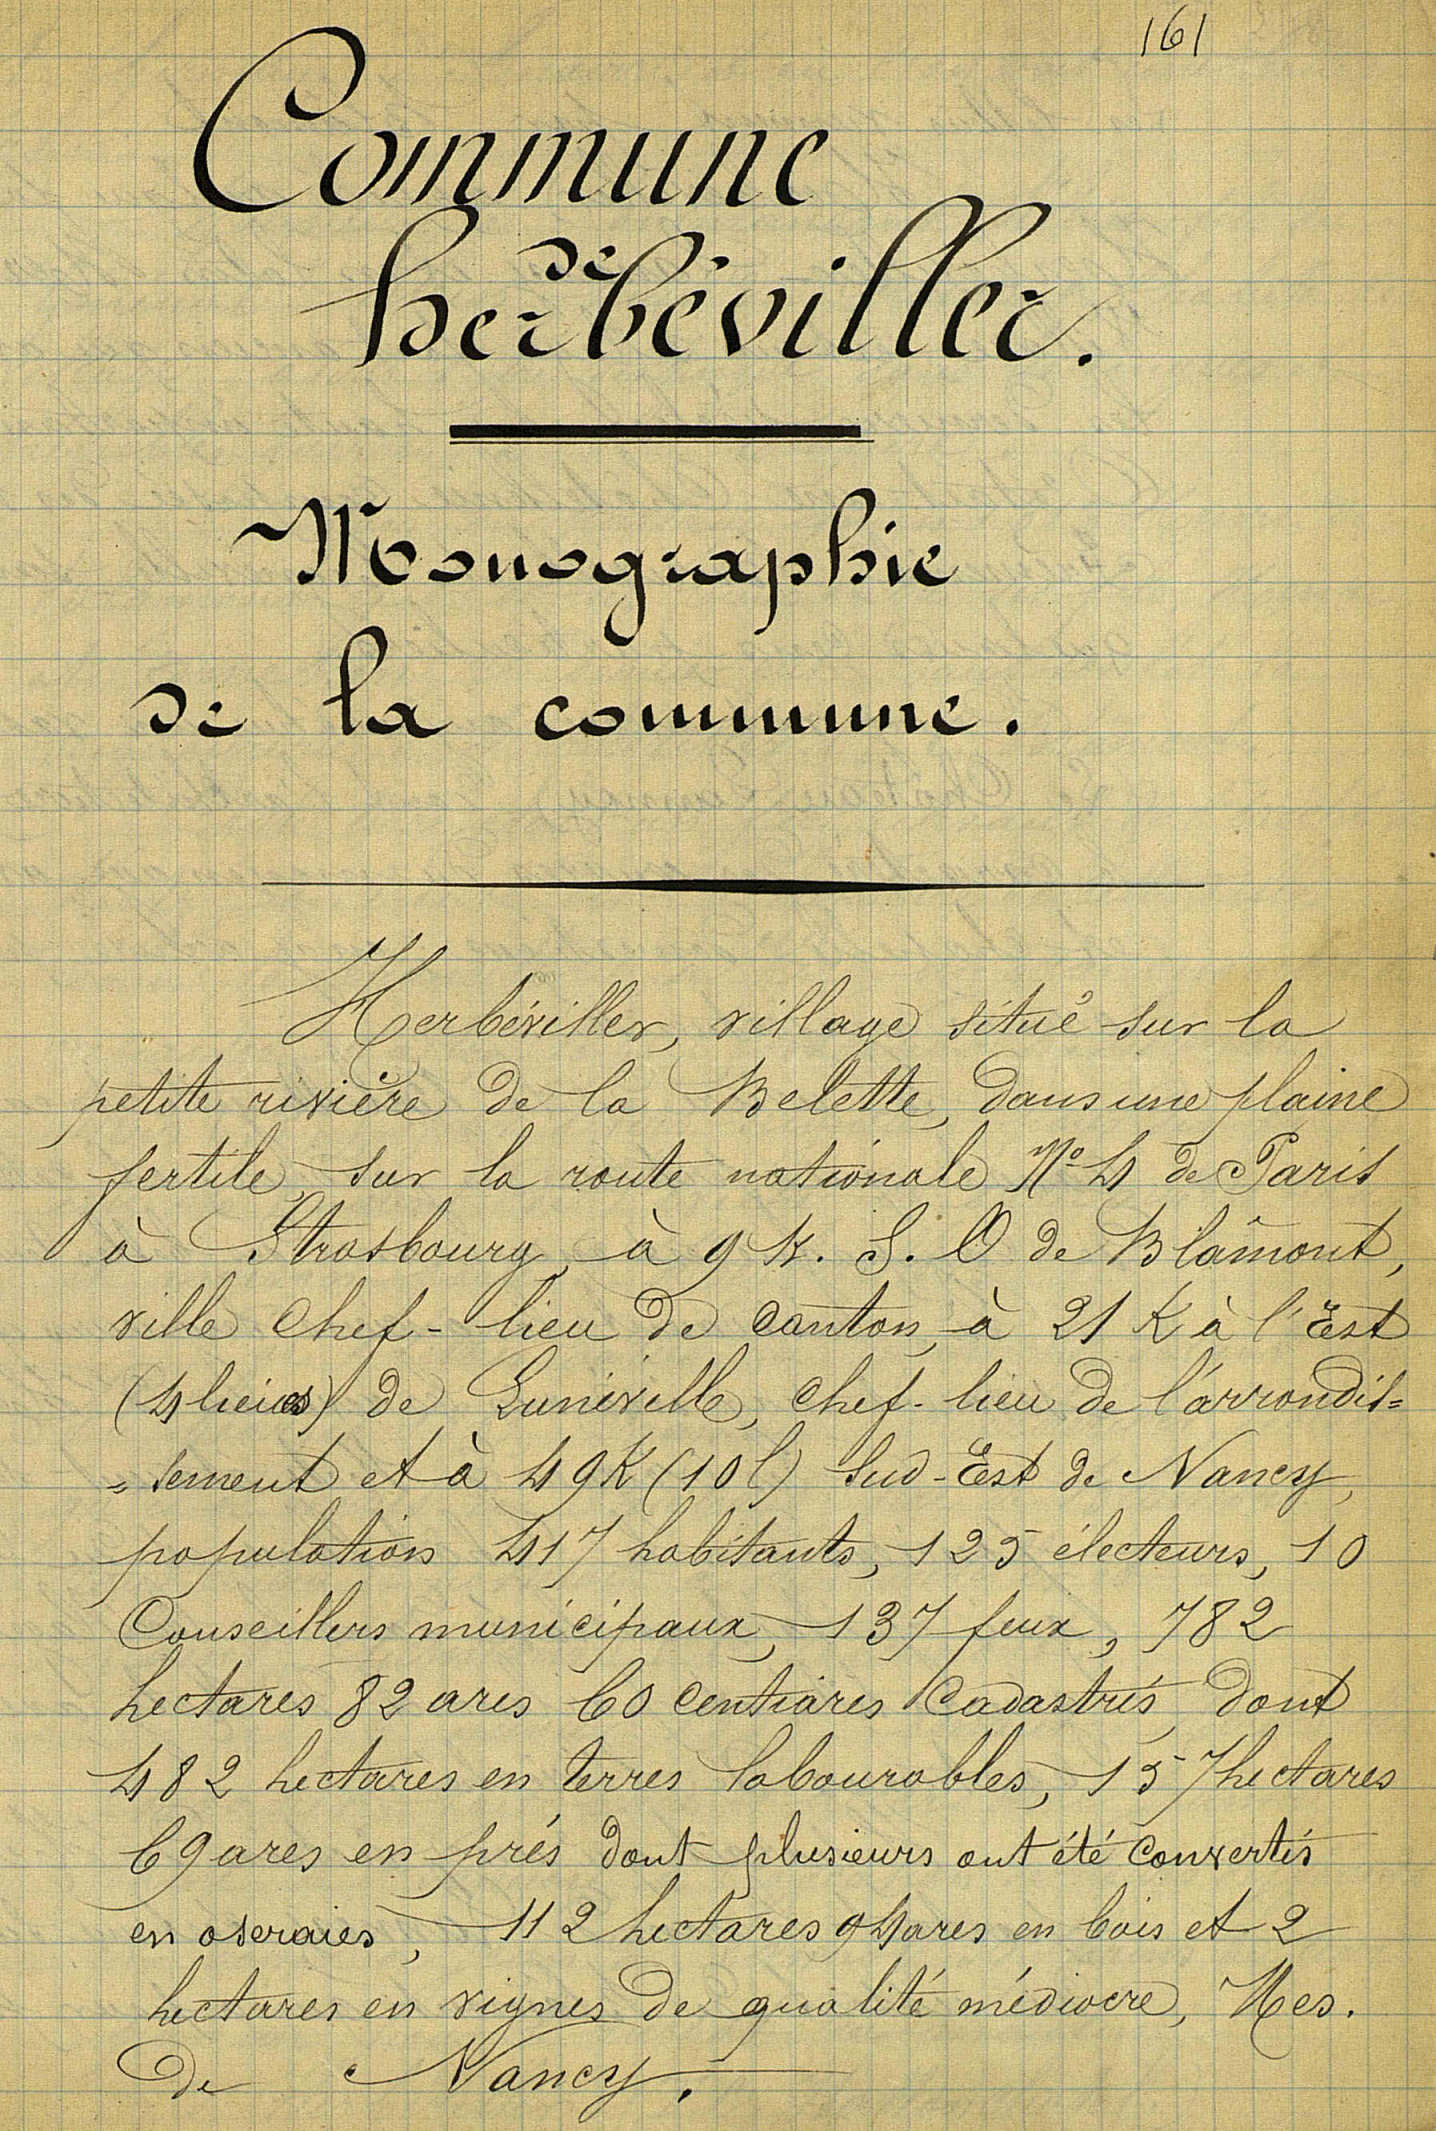 161
Commune
de
herbéviller.
Monographie
de la commune.
Herbéviller, village situé sur la
petite rivière de la Belette, dans une plaine
fertile, sur la route nationale No 4 de Paris
à Strasbourg, à 9 K. S. O de Blâmont,
ville chef-lieu de canton, à 21 K à l'Est
(4 lieues) de Lunéville, chef-lieu de l'arrondis=
=sement et à 49 K (10 l) Sud-Est de Nancy,
population 417 habitants, 125 électeurs, 10
Conseillers municipaux, 137 feux, 782
hectares 82 ares 60 centiares cadastrés, dont
482 hectares en terres labourables, 157 hectares
69 ares en prés dont plusieurs ont été convertis
en oseraies, 112 hectares 94 ares en bois et 2
hectares en vignes de qualité médiocre,
de Nancy.